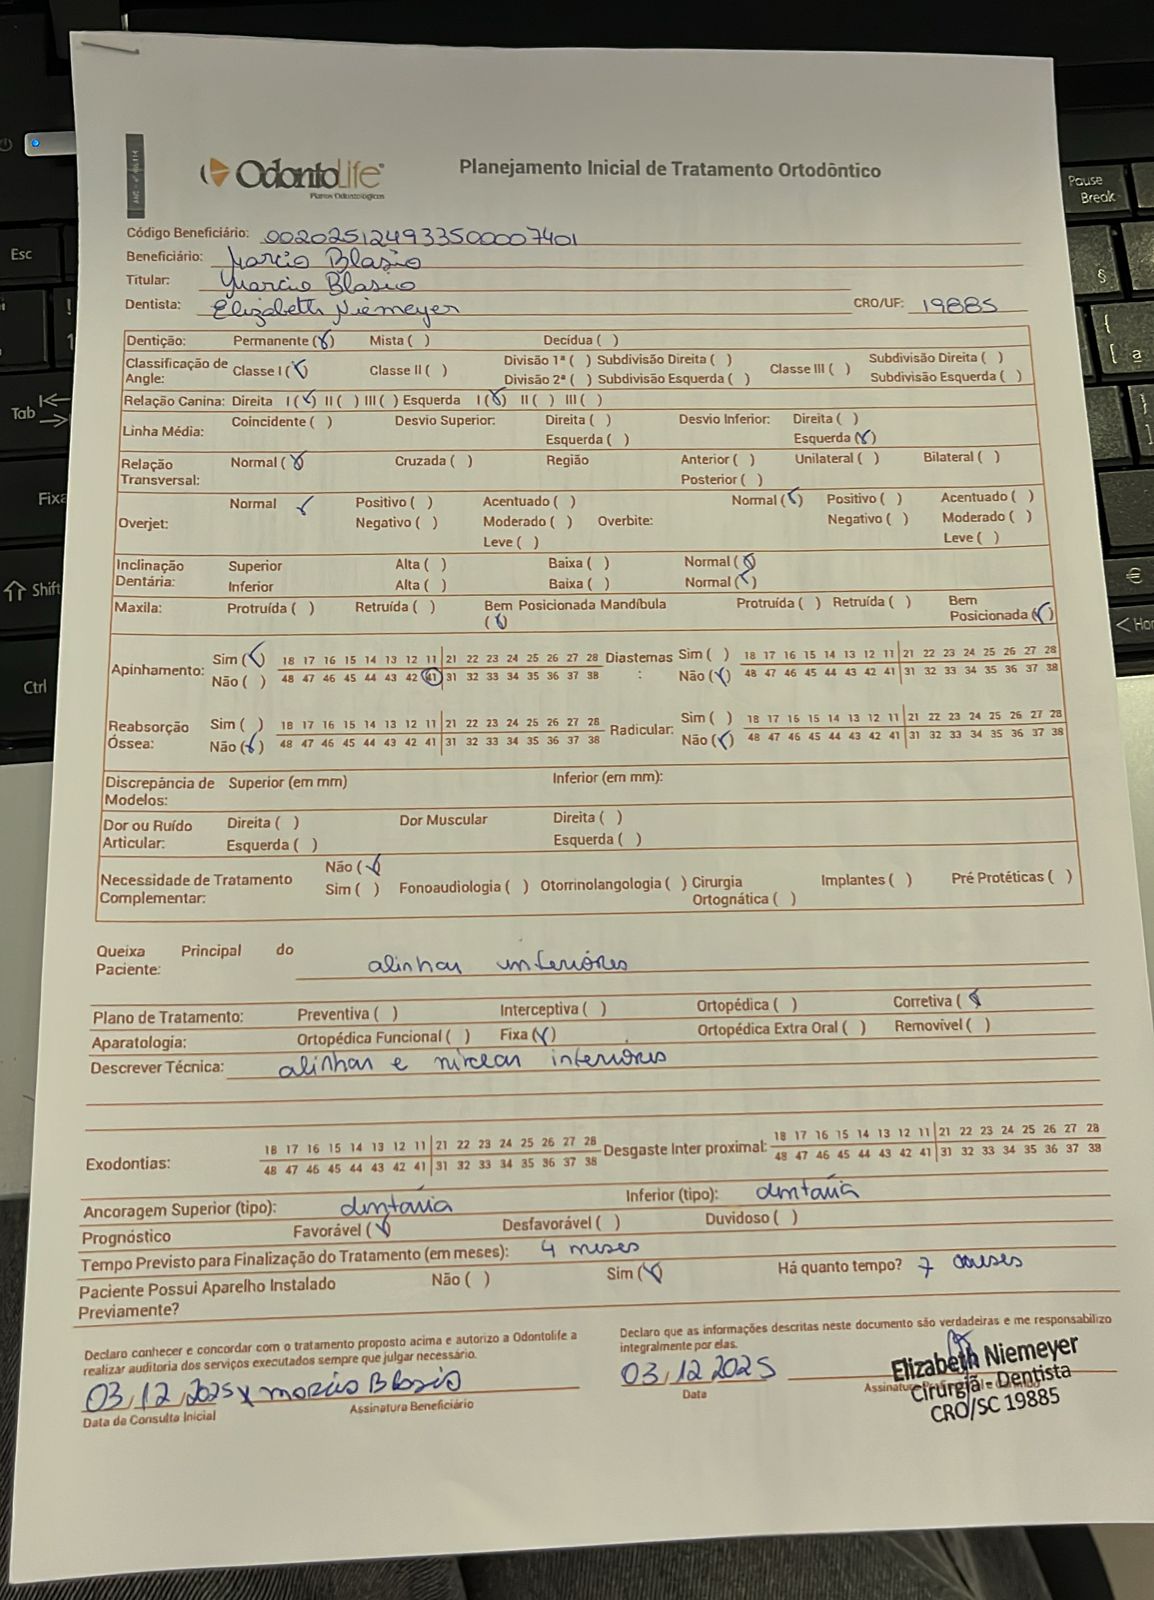 Pause
Break
Esc
Tab
Fixa
Shift
Ctrl
§
{
[ ª
€
< Hom
OdontoLife®
Planos Odontológicos
Planejamento Inicial de Tratamento Ortodôntico
Código Beneficiário: 002025124933500007401
Beneficiário: Marcio Blasio
Titular: Marcio Blasio
Dentista: Elizabeth Niemeyer CRO/UF: 19885
Dentição: Permanente (X) Mista ( ) Decídua ( )
Classificação de Angle: Classe I (X) Classe II ( ) Divisão 1ª ( ) Subdivisão Direita ( ) Classe III ( ) Subdivisão Direita ( )
Divisão 2ª ( ) Subdivisão Esquerda ( ) Subdivisão Esquerda ( )
Relação Canina: Direita I (X) II ( ) III ( ) Esquerda I (X) II ( ) III ( )
Linha Média: Coincidente ( ) Desvio Superior: Direita ( ) Desvio Inferior: Direita ( )
Esquerda ( ) Esquerda (X)
Relação Transversal: Normal (X) Cruzada ( ) Região Anterior ( ) Unilateral ( ) Bilateral ( )
Posterior ( )
Overjet: Normal X Positivo ( ) Acentuado ( ) Overbite: Normal (X) Positivo ( ) Acentuado ( )
Negativo ( ) Moderado ( ) Negativo ( ) Moderado ( )
Leve ( ) Leve ( )
Inclinação Dentária: Superior Alta ( ) Baixa ( ) Normal (X)
Inferior Alta ( ) Baixa ( ) Normal (X)
Maxila: Protruída ( ) Retruída ( ) Bem Posicionada (X) Mandíbula Protruída ( ) Retruída ( ) Bem Posicionada (X)
Apinhamento: Sim (X) 18 17 16 15 14 13 12 11 21 22 23 24 25 26 27 28 Diastemas : Sim ( ) 18 17 16 15 14 13 12 11 21 22 23 24 25 26 27 28
Não ( ) 48 47 46 45 44 43 42 41 31 32 33 34 35 36 37 38 Não (X) 48 47 46 45 44 43 42 41 31 32 33 34 35 36 37 38
Reabsorção Óssea: Sim ( ) 18 17 16 15 14 13 12 11 21 22 23 24 25 26 27 28 Radicular: Sim ( ) 18 17 16 15 14 13 12 11 21 22 23 24 25 26 27 28
Não (X) 48 47 46 45 44 43 42 41 31 32 33 34 35 36 37 38 Não (X) 48 47 46 45 44 43 42 41 31 32 33 34 35 36 37 38
Discrepância de Modelos: Superior (em mm) Inferior (em mm):
Dor ou Ruído Articular: Direita ( ) Dor Muscular Direita ( )
Esquerda ( ) Esquerda ( )
Necessidade de Tratamento Complementar: Não (X)
Sim ( ) Fonoaudiologia ( ) Otorrinolangologia ( ) Cirurgia Ortognática ( ) Implantes ( ) Pré Protéticas ( )
Queixa Principal do Paciente: alinhar inferiores
Plano de Tratamento: Preventiva ( ) Interceptiva ( ) Ortopédica ( ) Corretiva (X)
Aparatologia: Ortopédica Funcional ( ) Fixa (X) Ortopédica Extra Oral ( ) Removível ( )
Descrever Técnica: alinhar e nivelar inferiores
Exodontias: 18 17 16 15 14 13 12 11 21 22 23 24 25 26 27 28 Desgaste Inter proximal: 18 17 16 15 14 13 12 11 21 22 23 24 25 26 27 28
48 47 46 45 44 43 42 41 31 32 33 34 35 36 37 38 48 47 46 45 44 43 42 41 31 32 33 34 35 36 37 38
Ancoragem Superior (tipo): dentária Inferior (tipo): dentária
Prognóstico Favorável (X) Desfavorável ( ) Duvidoso ( )
Tempo Previsto para Finalização do Tratamento (em meses): 4 meses
Paciente Possui Aparelho Instalado Previamente? Não ( ) Sim (X) Há quanto tempo? 7 meses
Declaro conhecer e concordar com o tratamento proposto acima e autorizo a Odontolife a
realizar auditoria dos serviços executados sempre que julgar necessário.
Declaro que as informações descritas neste documento são verdadeiras e me responsabilizo
integralmente por elas.
03/12/2025 x Marcio Blasio
Data da Consulta Inicial Assinatura Beneficiário
03/12 2025
Data
Elizabeth Niemeyer
Cirurgiã - Dentista
CRO/SC 19885